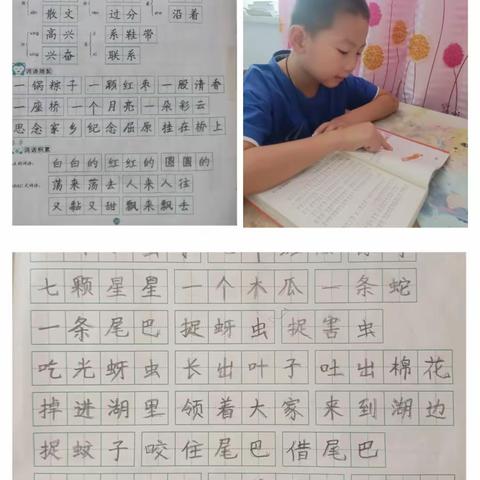 散文 过分 沿着
高兴 系鞋带
兴奋 联系
词语搭配
一锅粽子 一颗红枣 一股清香
一座桥 一个月亮 一朵彩云
思念家乡 纪念屈原 挂在桥上
词语积累
白白的 红红的 圆圆的
荡来荡去 人来人往
又黏又甜 飘来飘去
七颗星星 一个木瓜 一条蛇
一条尾巴 捉蚜虫 捉害虫
吃光蚜虫 长出叶子 吐出棉花
掉进湖里 领着大家 来到湖边
捉蚊子 咬住尾巴 借尾巴